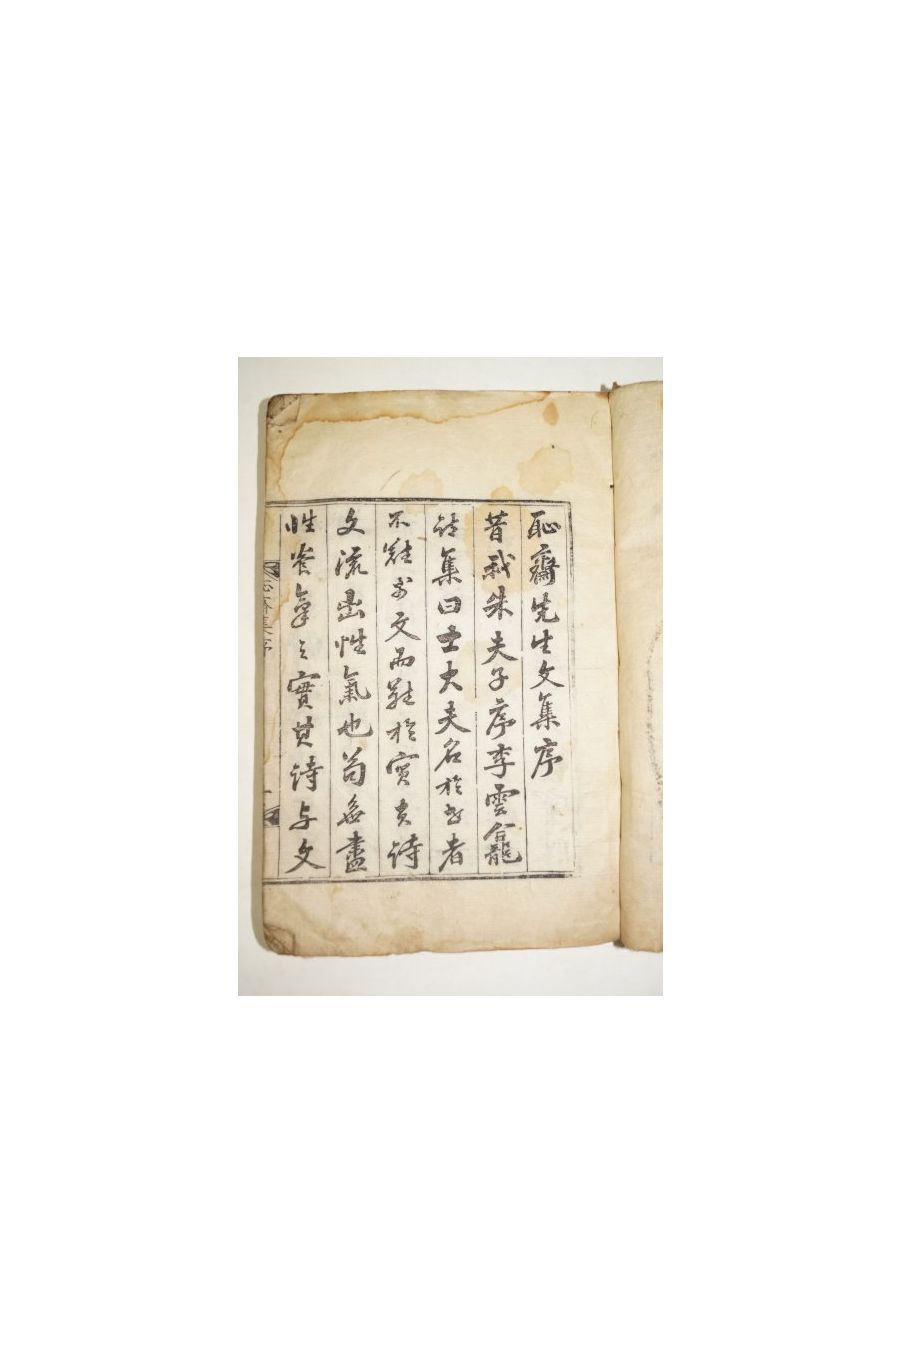 恥齋先生文集序
昔我朱夫子序李雲龕
詩集曰士大夫名於世者
不難於文而難於實其詩
文流出性氣也苟無盡
性養氣之實其詩与文